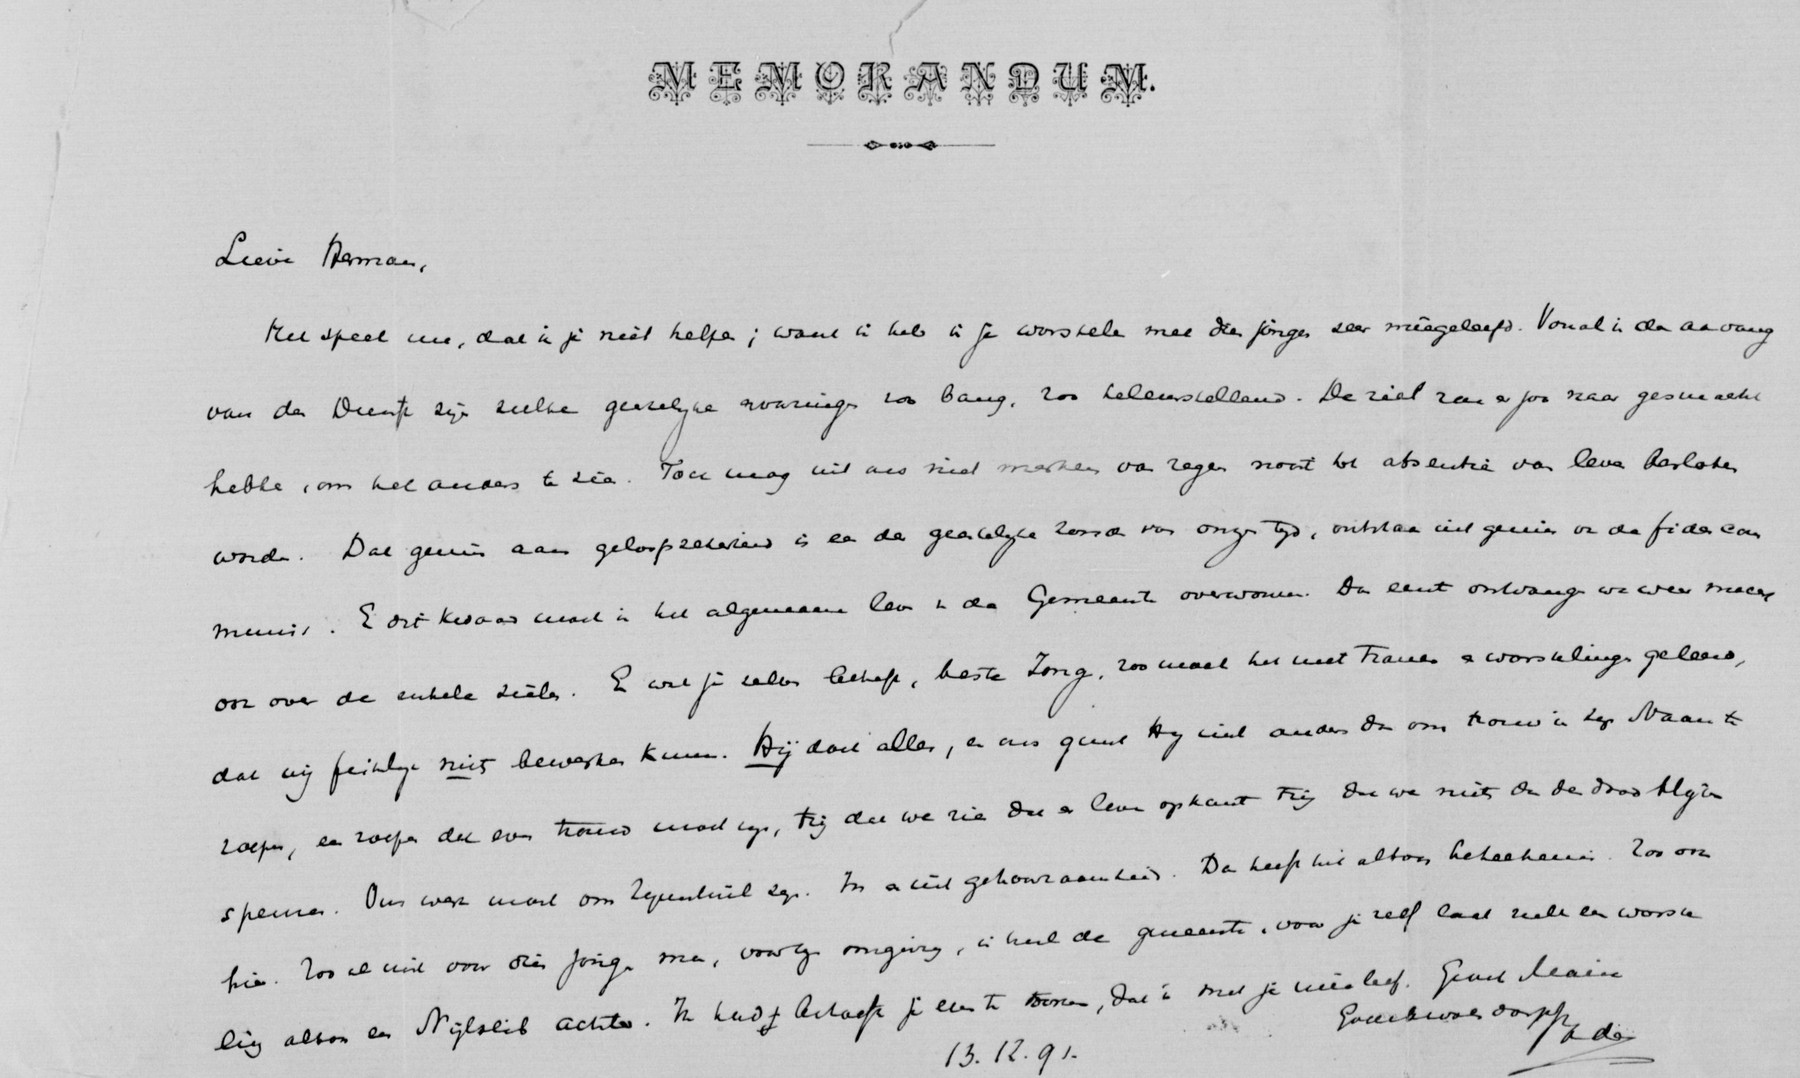 MEMORANDUM.
Lieve Herman,
Het speet me, dat ik je niet helpen; want ik heb in je worstelen met dien jongen zeer meegeleefd. Vooral in den aanvang
van den Dienst zijn zulke geestelyke ervaringen zoo bang, zoo teleurstellend. De ziel zou er zoo naar gesmacht
hebbe, om het anders te zien. Toch mag uit ons niet merken van zegen nooit tot absentie van leven besloten
worden. Dat gemis aan geloofszekerheid is een der geestelyke zonden van onzen tyd, ontstaan uit gemis van de fides com
munis. En dit kwaad moet in het algemeene leven in de Gemeente overwonnen. Dan eerst ontvangen we weer macht
ook over de enkele zielen. En wat je zelven betreft, beste Jong, zoo moet het met tranen en worstelingen geleerd,
dat wij feitelyk niets bewerken kunnen. Hij doet alles, en ons gunt Hy niet anders dan om trouw in zyn Naam te
roepen, en roepen dat even trouw moet zyn, 't zij dat we zien dat er leven opkomt 't zij dat we niets dan den dood blijven
speuren. Ons werk moet om Zynentwil zyn. In en uit gehoorzaamheid. Dan heeft het altoos beteekenis. Zoo ook
hier. Zoo al niet voor dien jongen man, voor zyn omgeving, in heel de gemeente, voor je zelf laat zulk een worste
ling altoos een Nijlslib achter. Ik had behoefte je even te toonen, dat ik met je meeleef. Groet
13.12.91.